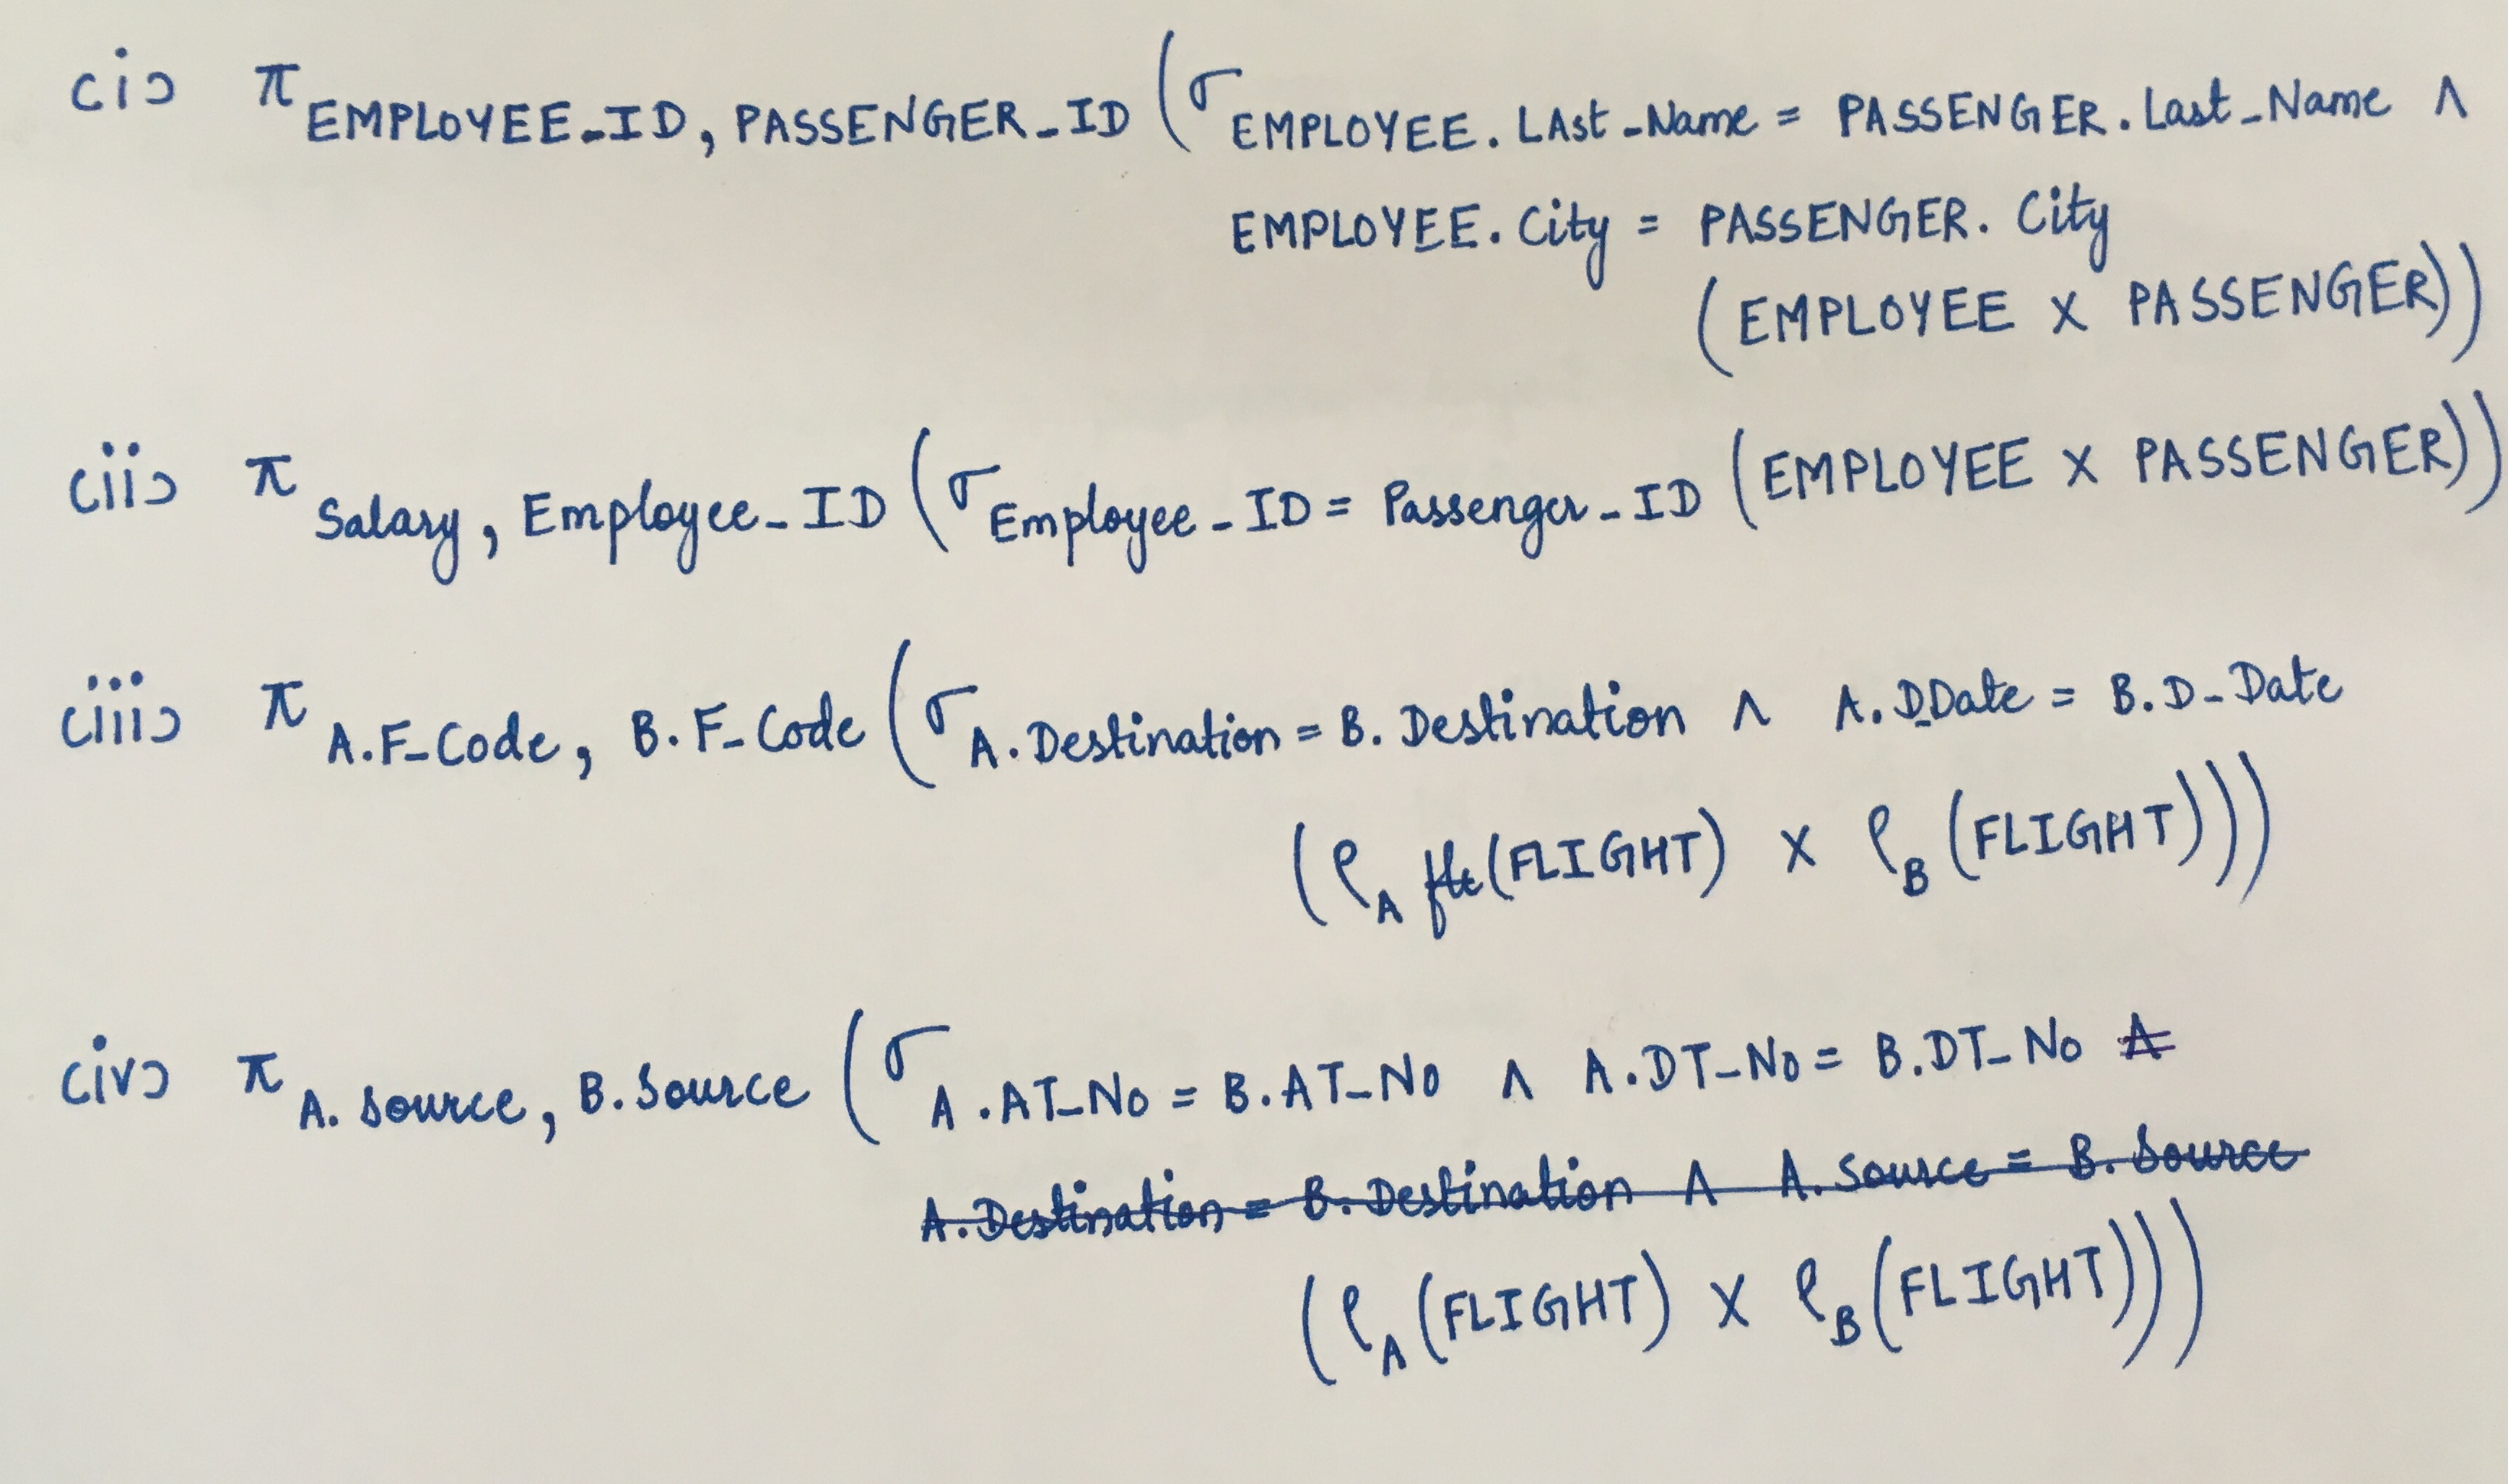 (i) π EMPLOYEE_ID, PASSENGER_ID (σ EMPLOYEE.LAst_Name = PASSENGER.Last_Name ∧
EMPLOYEE.City = PASSENGER.City
(EMPLOYEE X PASSENGER))
(ii) π Salary, Employee_ID (σ Employee_ID = Passenger_ID (EMPLOYEE X PASSENGER))
(iii) π A.F_Code, B.F_Code (σ A.Destination = B.Destination ∧ A.D_Date = B.D_Date
(ρ A (FLIGHT) X ρ B (FLIGHT)))
(iv) π A.source, B.source (σ A.AT_No = B.AT_No ∧ A.DT_No = B.DT_No
A.Destination = B.Destination ∧ A.source = B.source
(ρ A (FLIGHT) X ρ B (FLIGHT)))